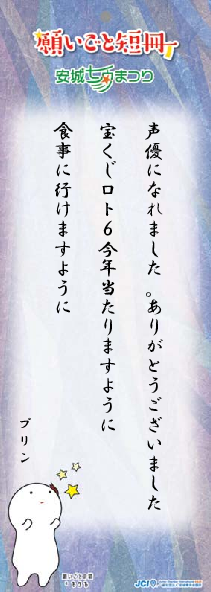 願いごと短冊
安城七夕まつり
声優になれました。ありがとうございました
宝くじロト6今年当たりますように
食事に行けますように
プリン
JCI